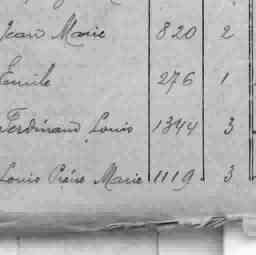 Jean Marie 820 2
Emile 276 1
Ferdinand Louis 1344 3
Louis Pierre Marie 1119 3